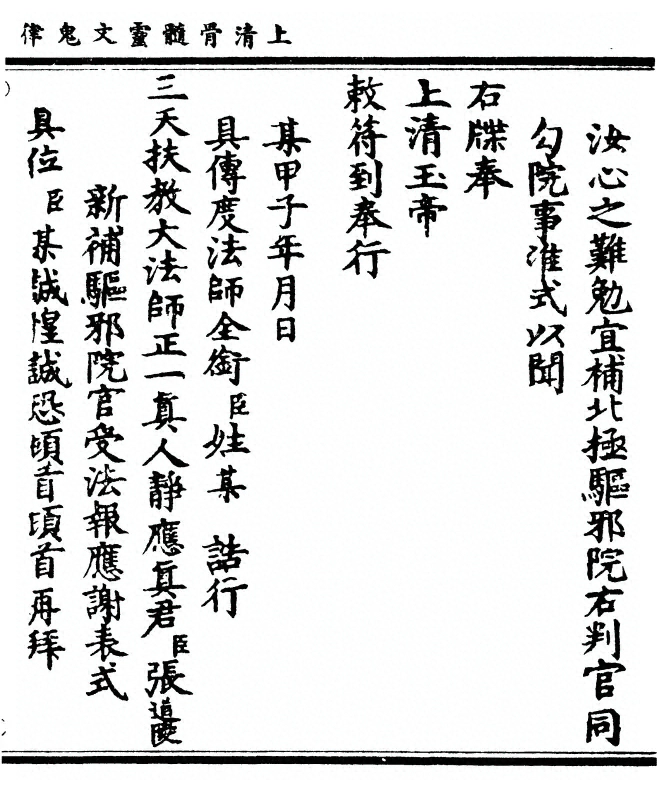 上清骨髓靈文鬼律
汝心之難勉宜補北極驅邪院右判官同
勾院事准式以聞
右牒奉
上清玉帝
敕符到奉行
某甲子年月日
具傳度法師全銜臣姓某 誥行
三天扶教大法師正一真人靜應真君臣張道陵
新補驅邪院官受法報應謝表式
具位臣某誠惶誠恐頓首頓首再拜